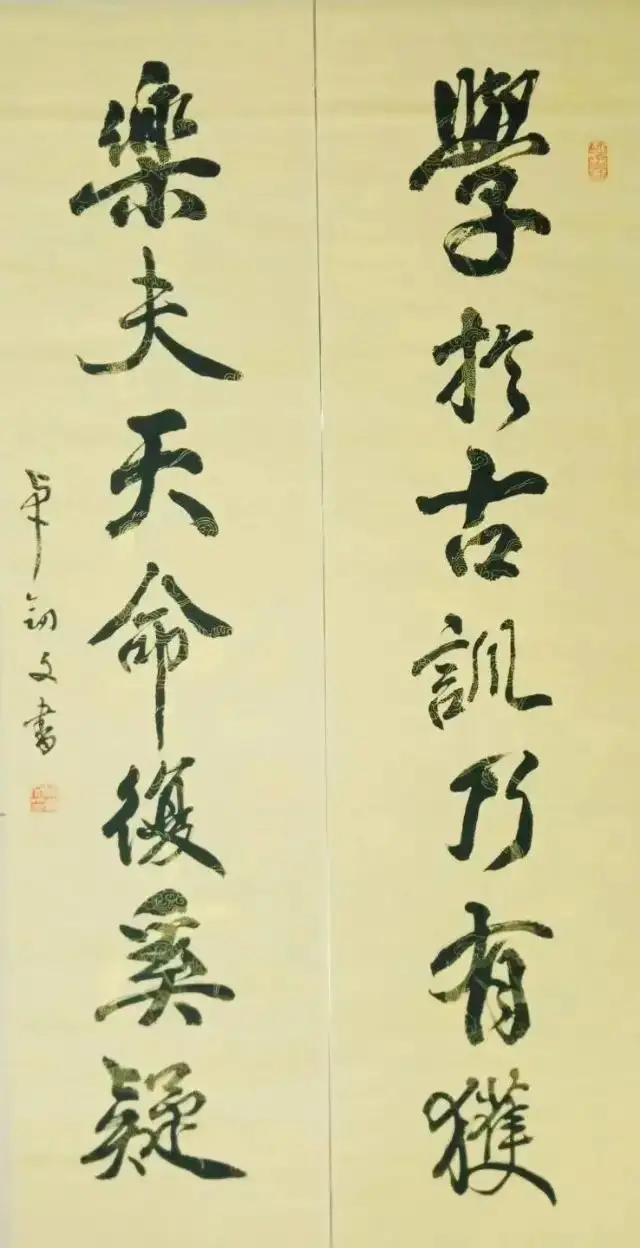 學於古訓乃有獲
樂夫天命復奚疑
卓劍文書